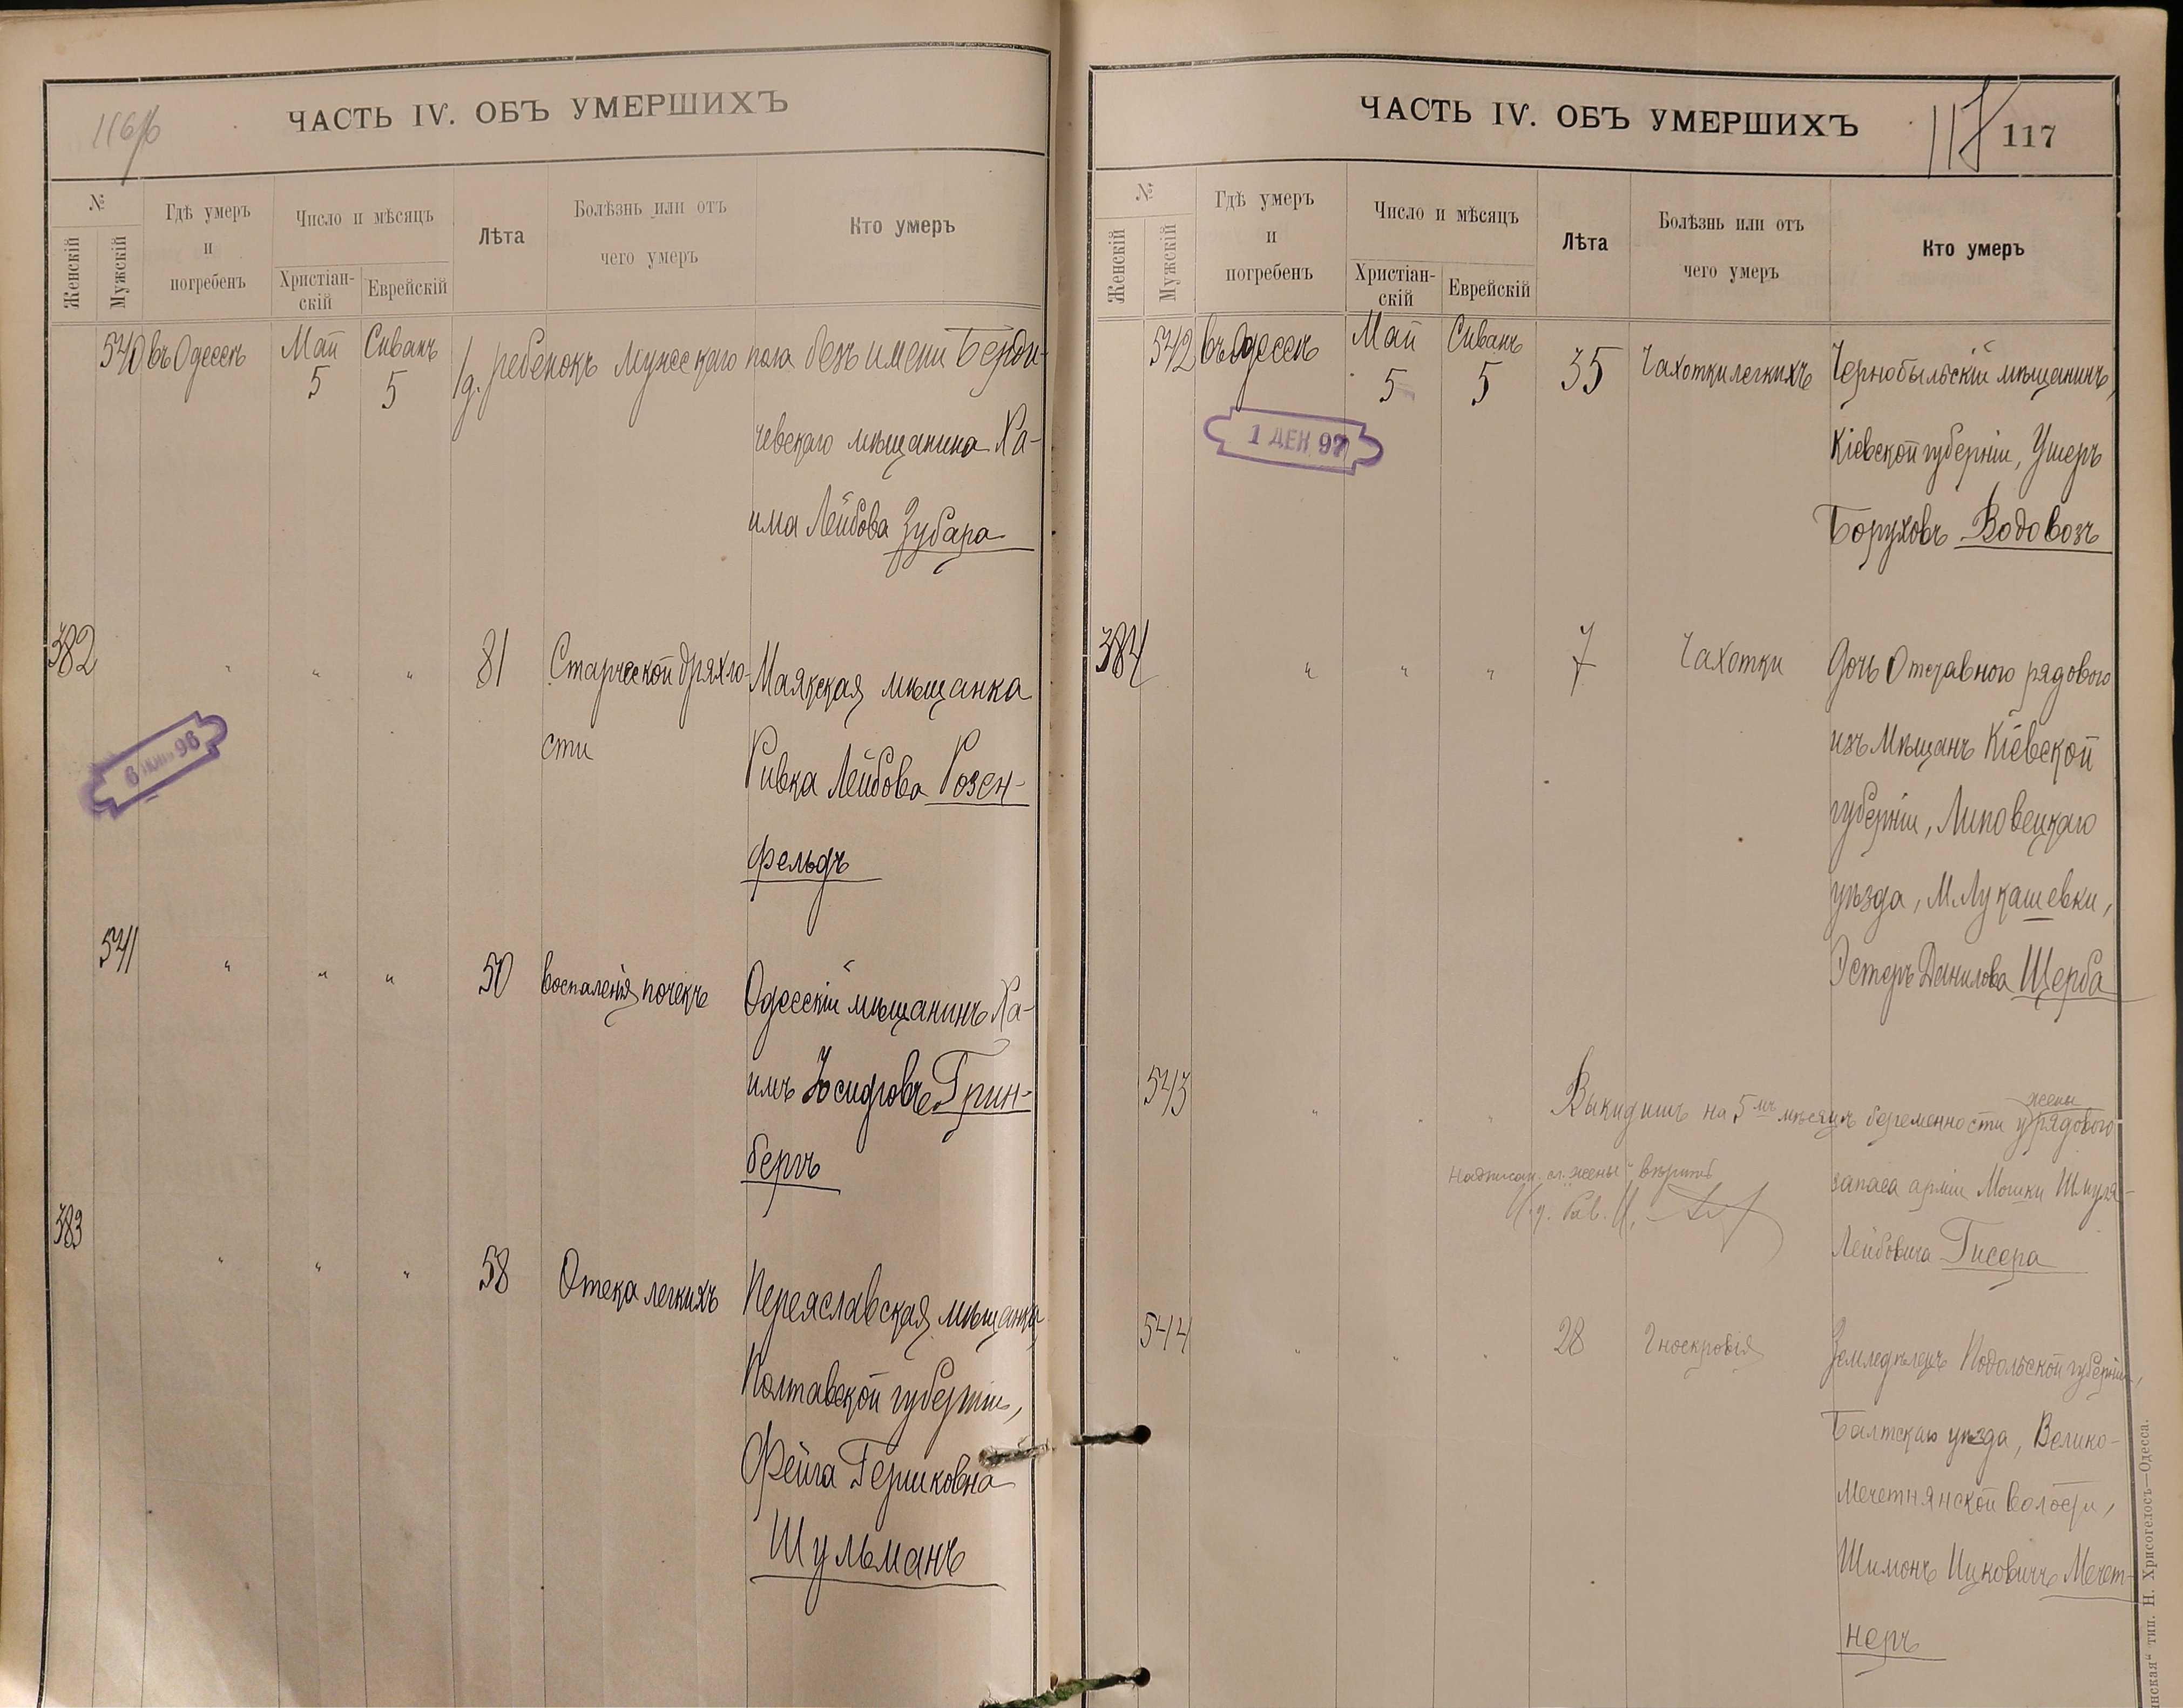 116
ЧАСТЬ IV. ОБЪ УМЕРШИХЪ
№
Женскій
Мужскій
Гдѣ умеръ
и
погребенъ
Число и мѣсяцъ
Христіан-
скій
Еврейскій
Лѣта
Болѣзнь или отъ
чего умеръ
Кто умеръ
540 въ Одессѣ Май 5 Сиванъ 5 1 д. ребенокъ мужескаго пола безъ имени Берди-
чевскаго мѣщанина Ха-
има Лейбова Зубара
382 " " " 81 Старческой дряхло- Маякская мѣщанка
сти Ривка Лейбова Розен-
фельдъ
6 98
541 " " " 50 воспаленія почекъ Одесскій мѣщанинъ Ха-
имъ Іосифовъ Грин-
бергъ
383 " " " 58 Отека легкихъ Переяславская мѣщанка
Полтавской губерніи,
Фейга Гершковна
Шульманъ
ЧАСТЬ IV. ОБЪ УМЕРШИХЪ
117 117
№
Женскій
Мужскій
Гдѣ умеръ
и
погребенъ
Число и мѣсяцъ
Христіан-
скій
Еврейскій
Лѣта
Болѣзнь или отъ
чего умеръ
Кто умеръ
542 въ Одессѣ Май 5 Сиванъ 5 35 Чахотки легкихъ Чернобыльскій мѣщанинъ,
Кіевской губерніи, Ушеръ
Боруховъ Водовозъ
1 ДЕК 97
384 " " " 7 Чахотки Дочь Отставного рядового
изъ Мѣщанъ Кіевской
губерніи, Липовецкаго
уѣзда, М. Лукашевки,
Эстеръ Данилова Щерба
543 " " " Выкидышъ на 5мъ мѣсяцѣ беременности у жены рядового
запаса арміи Мошки Шмуля-
Лейбовича Гисера
Надписан. сл. "жены" вѣрить
544 " " " 28 Гноекровія Земледѣлецъ Подольской губерніи,
Балтскаго уѣзда, Велико-
Мечетнянской волости,
Шимонъ Ицковичъ Мечет-
неръ
тип. Н. Хрисогелосъ—Одесса.